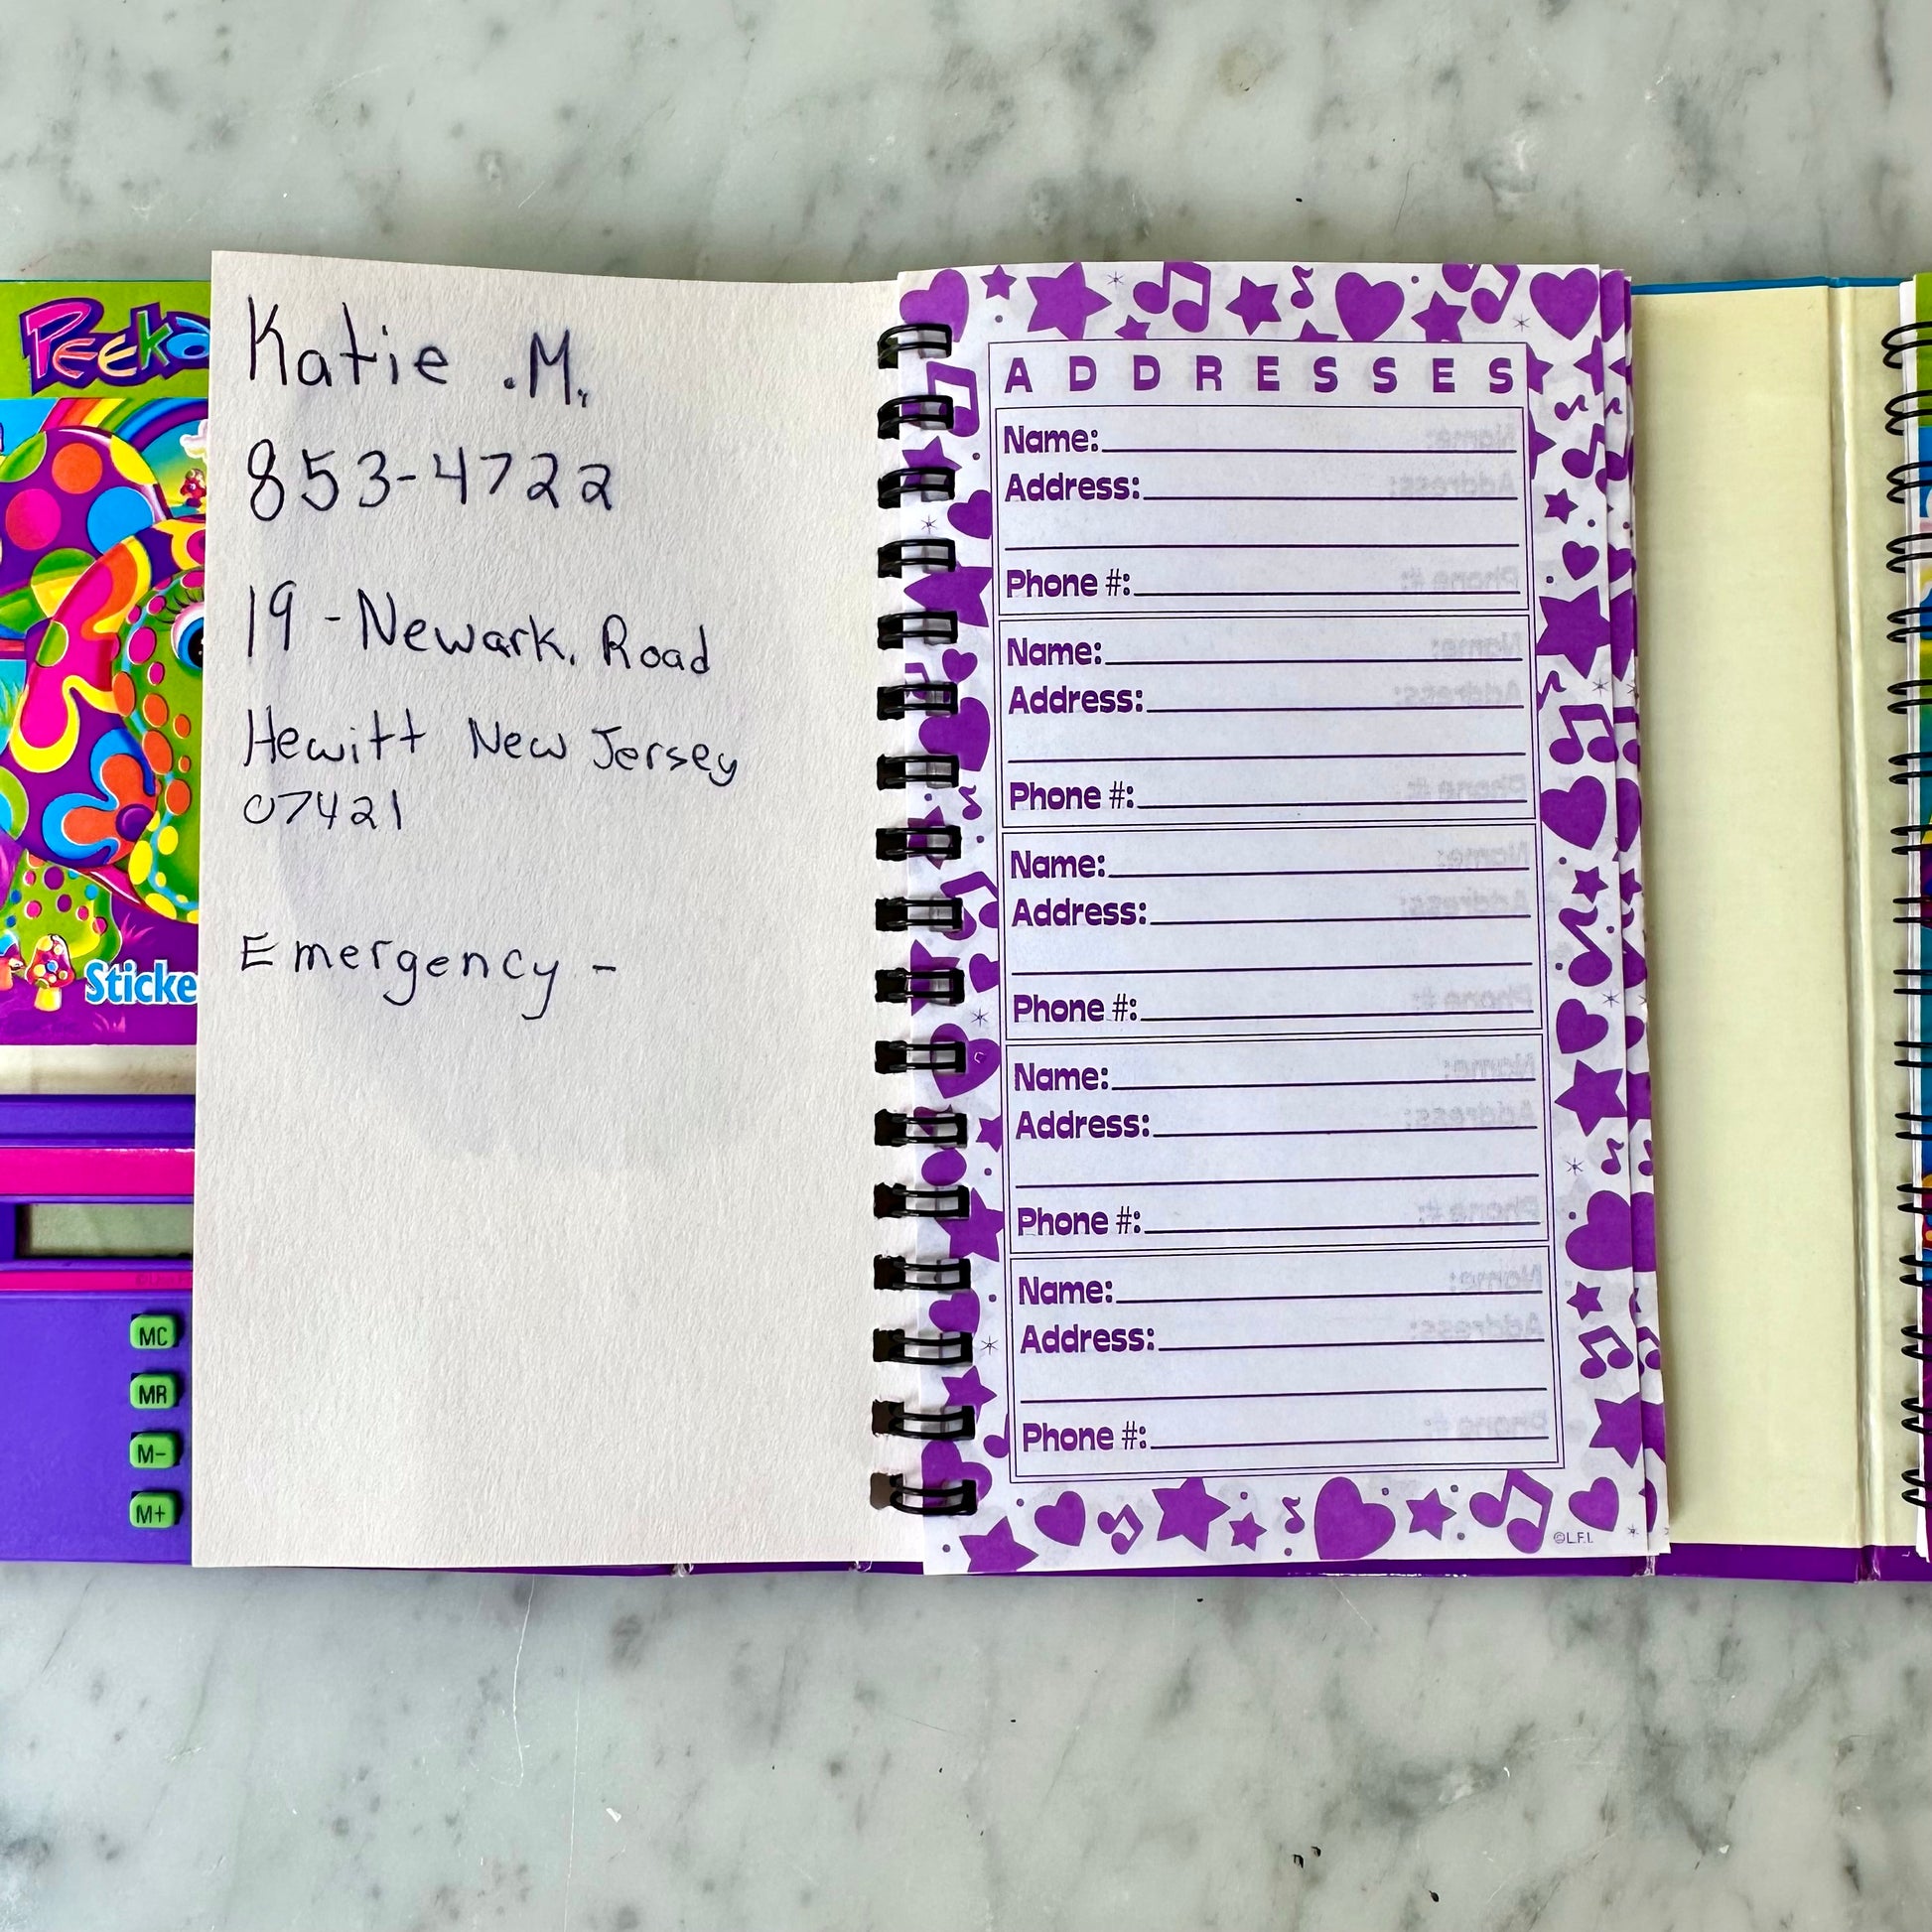 Peeka
Sticke
MC
MR
M-
M+
Katie .M.
853-4722
19 - Newark. Road
Hewitt New Jersey
07421
Emergency -
ADDRESSES
Name:
Address:
Phone #:
Name:
Address:
Phone #:
Name:
Address:
Phone #:
Name:
Address:
Phone #:
Name:
Address:
Phone #:
©L.F.I.